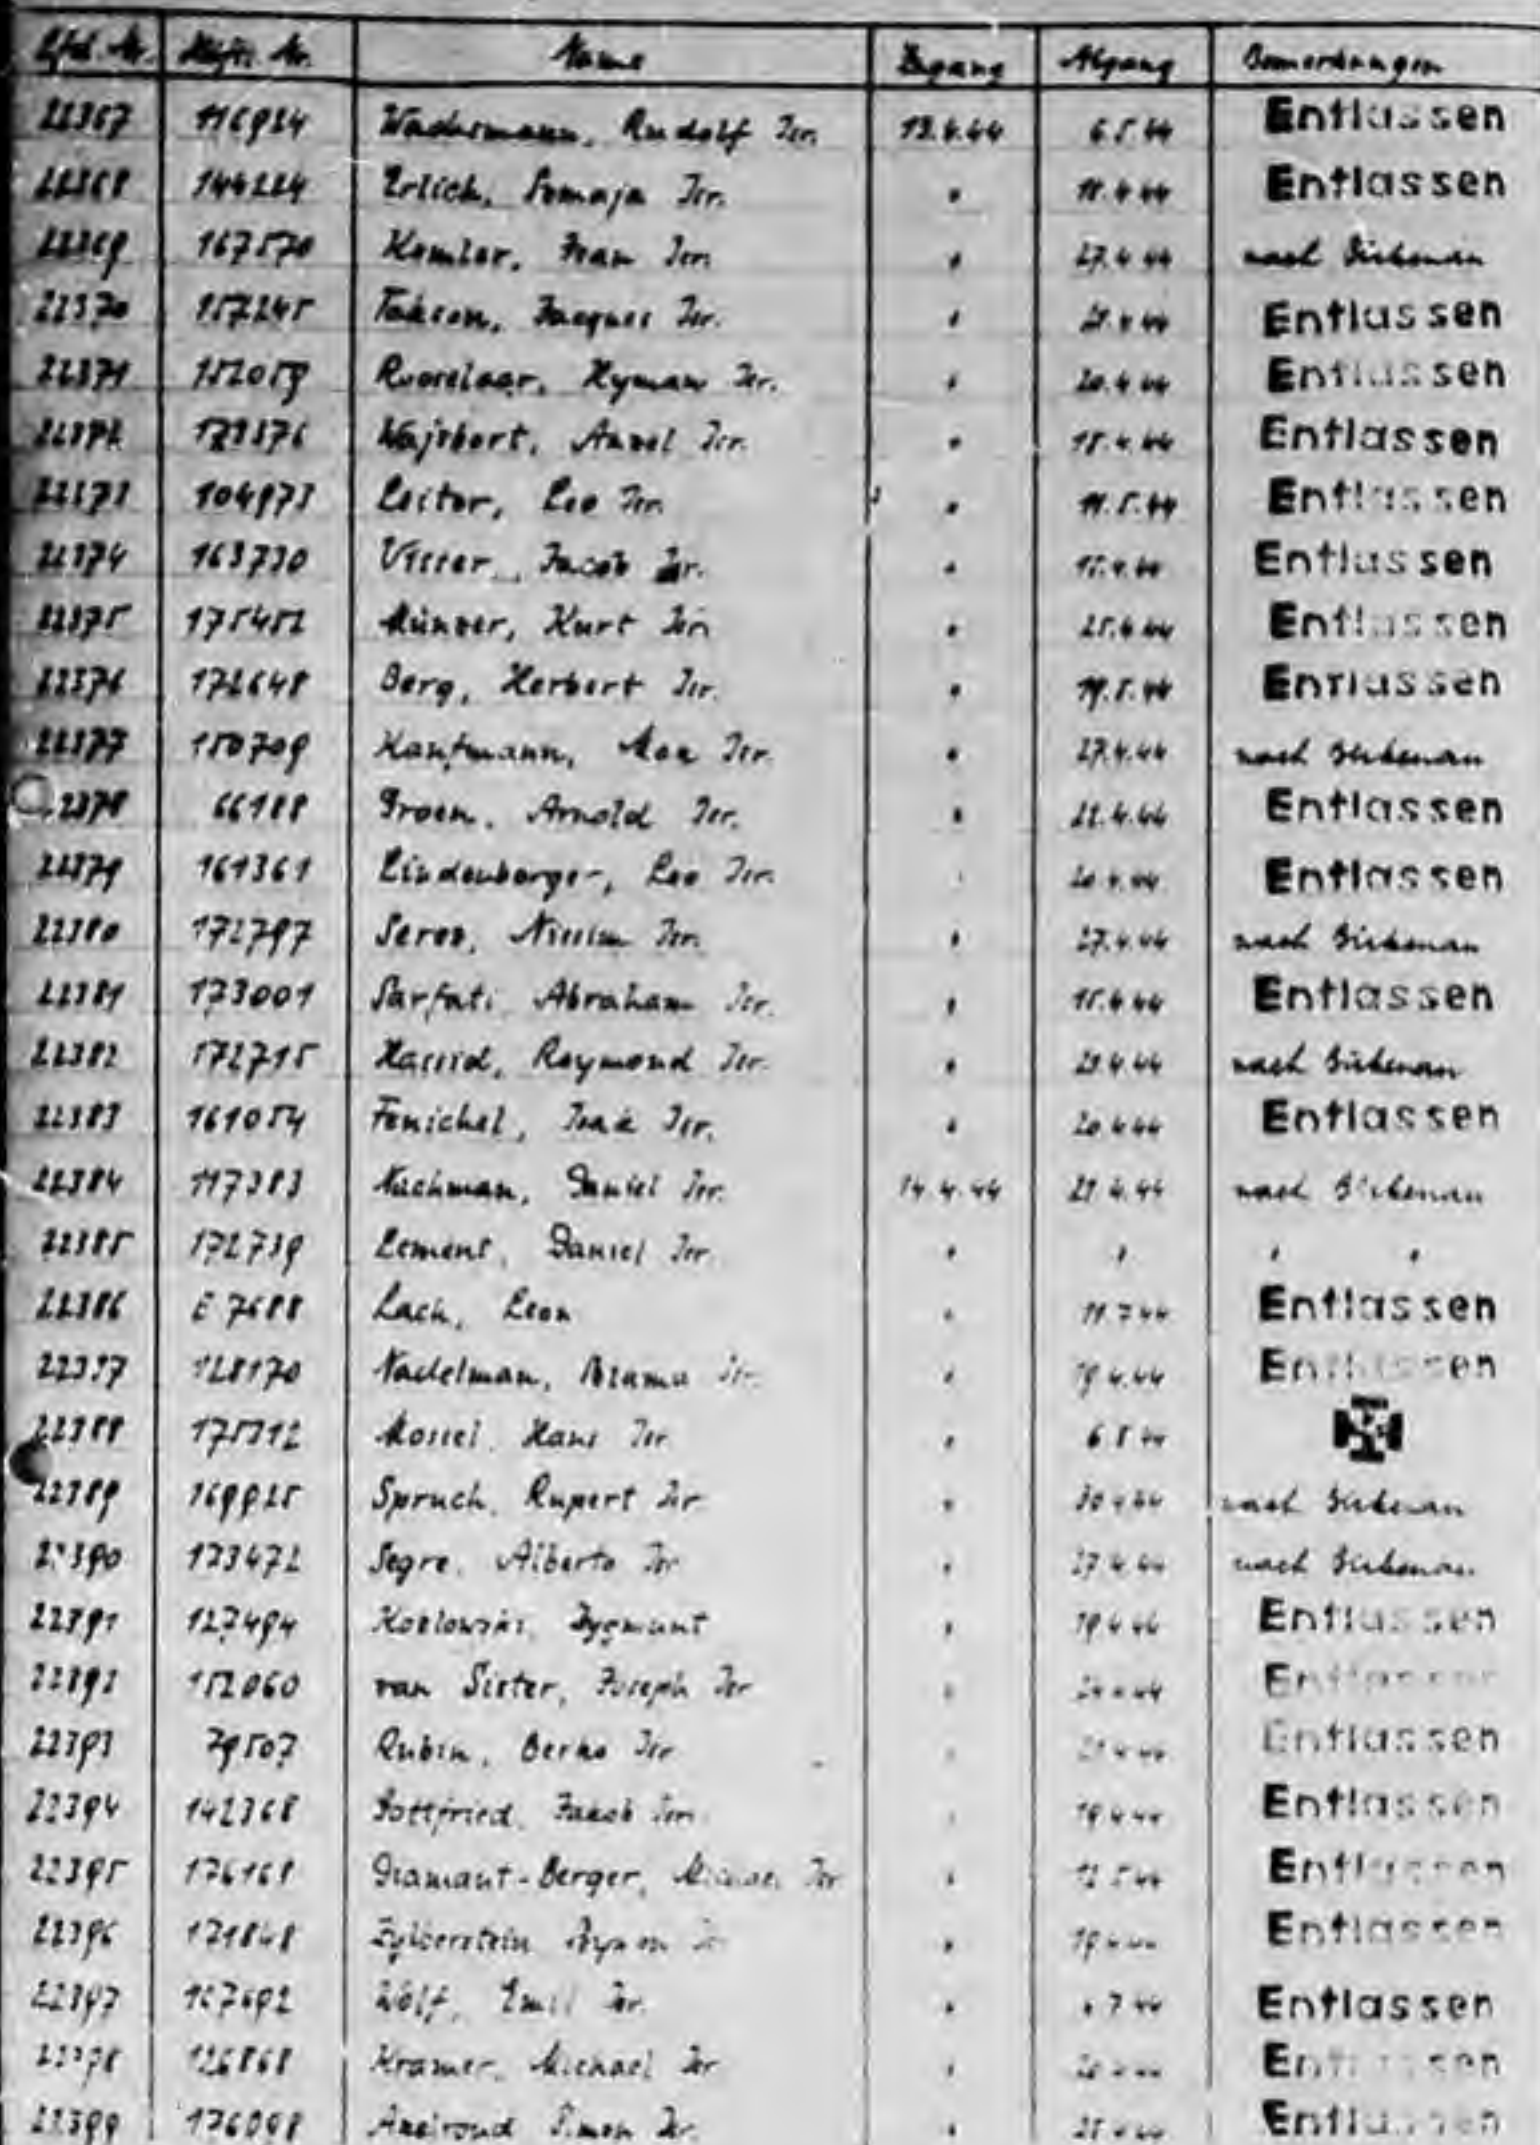 Lfd. Nr. Häftl. Nr. Name Zugang Abgang Bemerkungen
22367 116924 Wachsmann, Rudolf Isr. 13.4.44 6.5.44 Entlassen
22368 144224 Erlich, Isr. " 18.4.44 Entlassen
22369 167570 Kemler, Isr. " 27.4.44 nach Birkenau
22370 157245 Jacques Isr. " 21.4.44 Entlassen
22371 152059 Rooselaar, Hyman Isr. " 20.4.44 Entlassen
22372 Wajsbort, Isr. " 18.4.44 Entlassen
22373 104973 Leitor, Leo Isr. " 11.5.44 Entlassen
22374 163730 Visser, Jacob Isr. " 15.4.44 Entlassen
22375 175452 Münzer, Kurt Isr. " 25.4.44 Entlassen
22376 172648 Berg, Herbert Isr. " 19.5.44 Entlassen
22377 150709 Kaufmann, Max Isr. " 27.4.44 nach Birkenau
22378 66188 Groen, Arnold Isr. " 22.4.44 Entlassen
22379 161361 Lindenberger, Leo Isr. " 20.4.44 Entlassen
22380 172797 Isr. " 27.4.44 nach Birkenau
22381 173001 Sarfati, Abraham Isr. " 15.4.44 Entlassen
22382 172715 Hassid, Raymond Isr. " 29.4.44 nach Birkenau
22383 161054 Fenichel, Isr. " 20.4.44 Entlassen
22384 117383 Nachman, Daniel Isr. 14.4.44 29.4.44 nach Birkenau
22385 172739 Lement, Daniel Isr. " " " "
22386 E 7688 Lach, Leon " 11.7.44 Entlassen
22387 128170 Nadelman, Isr. " 19.4.44 Entlassen
22388 Mossel, Hans Isr. " 6.5.44
22389 169925 Spruch, Rupert Isr. " 30.4.44 nach Birkenau
22390 173472 Segre, Alberto Isr. " 27.4.44 nach Birkenau
22391 127494 Kozlowski, Zygmunt " 19.4.44 Entlassen
22392 152060 van Sister, Joseph Isr. " Entlassen
22393 79507 Rubin, Isr. " Entlassen
22394 142368 Gottfried, Jakob Isr. " 19.4.44 Entlassen
22395 176168 Diamant-Berger, Isr. " 12.5.44 Entlassen
22396 171848 Zylberstein, " 19.4.44 Entlassen
22397 167692 Wolf, Emil Isr. " Entlassen
22398 126868 Kramer, Michael Isr. " Entlassen
22399 176098 Simon Isr. " Entlassen